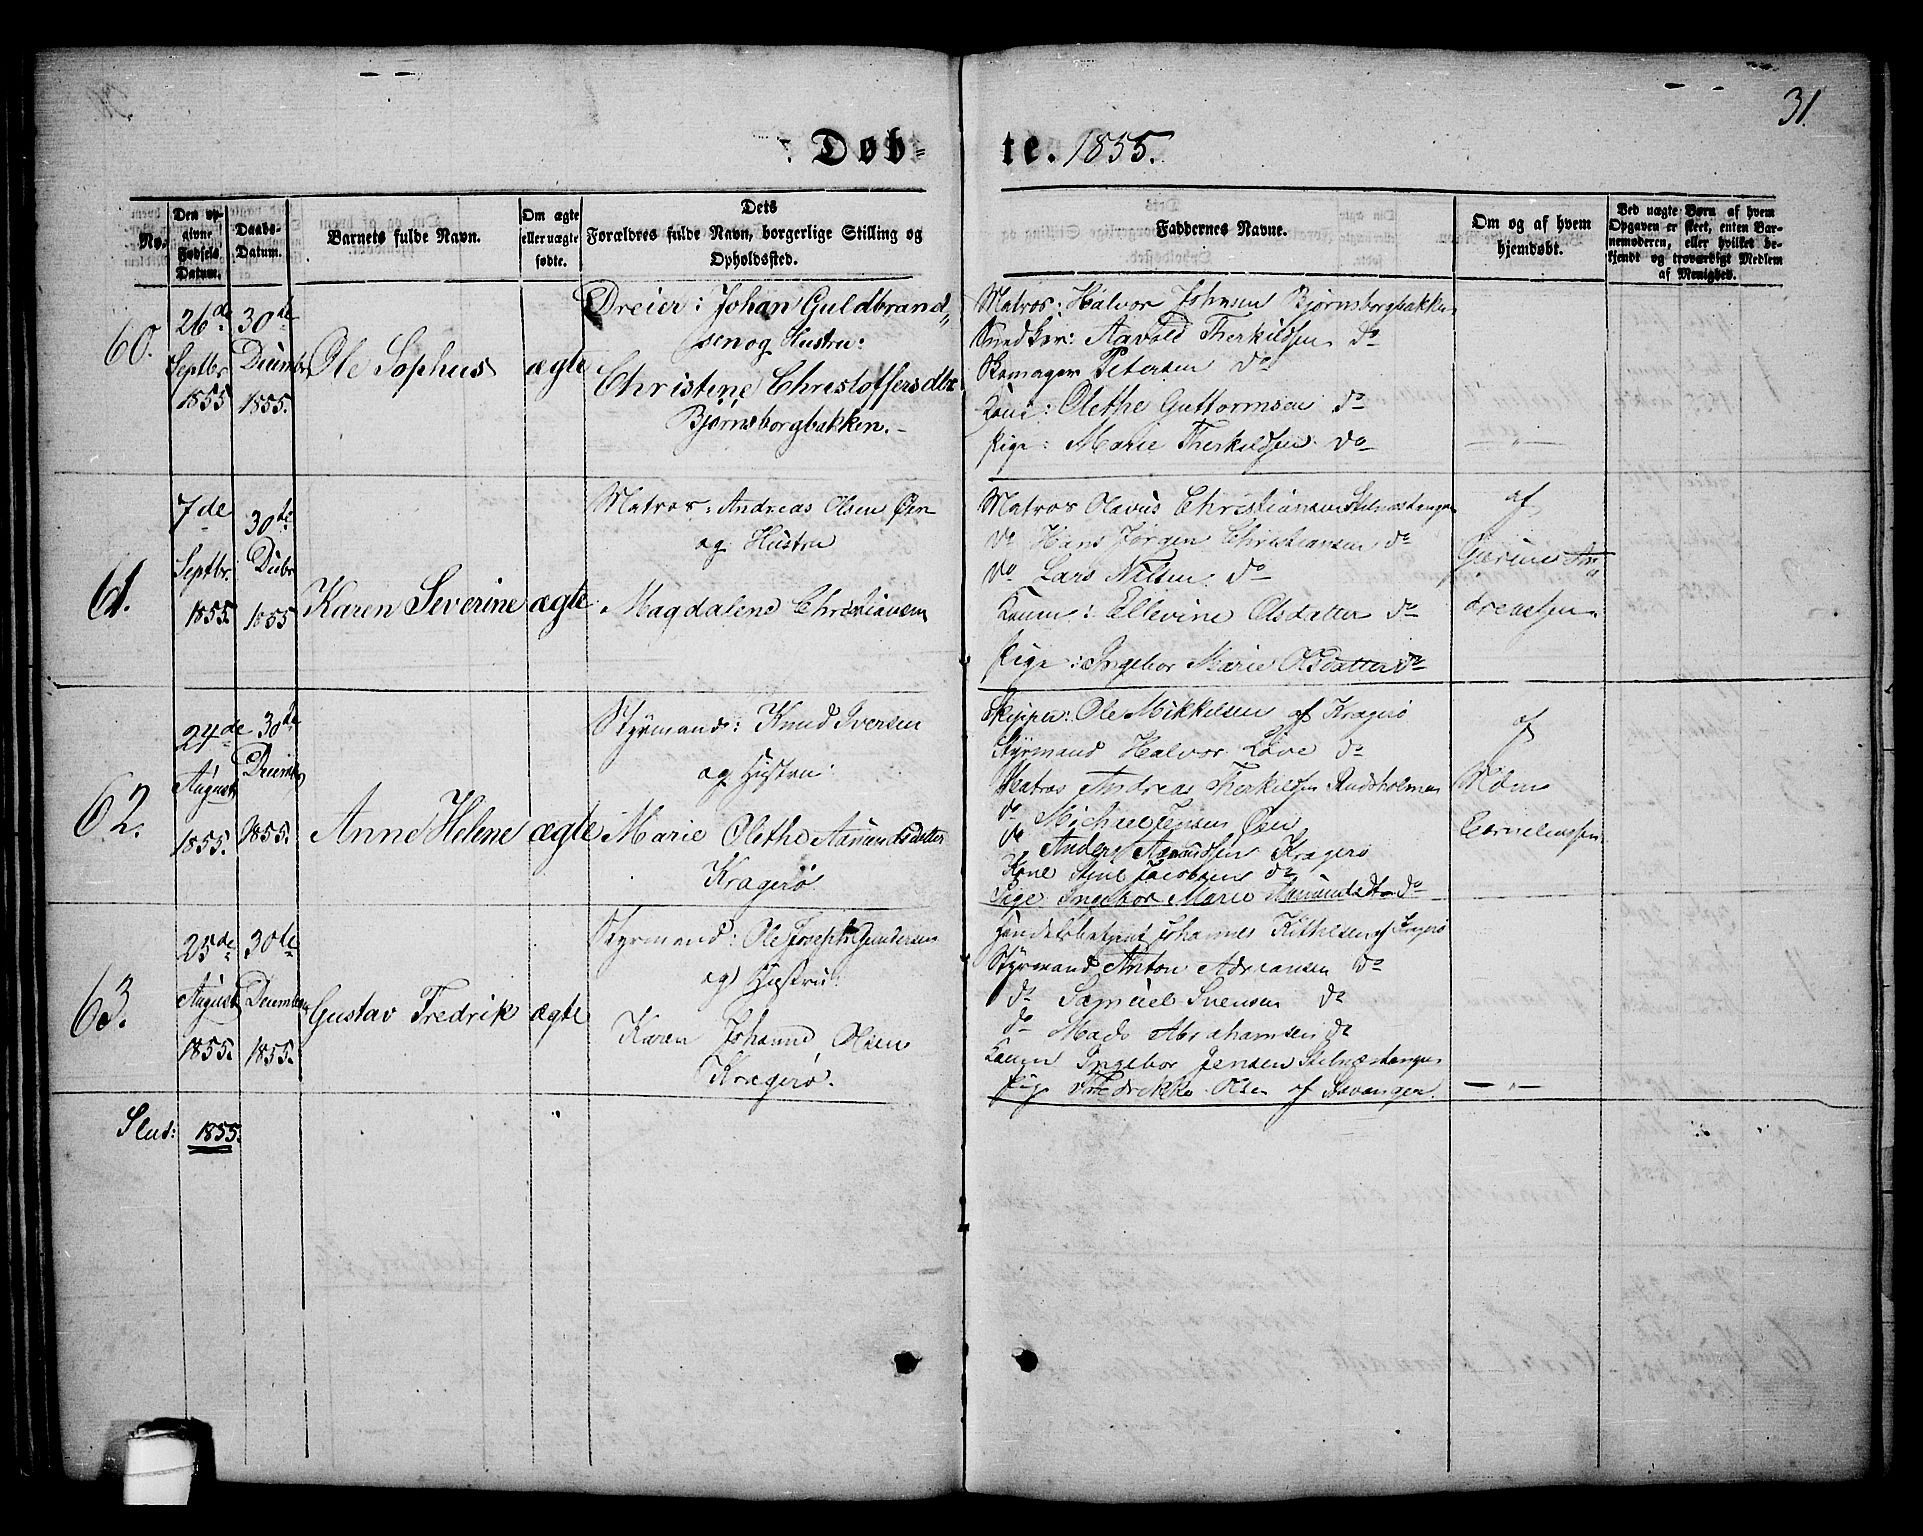 31.
Døb-
te. 1855.
No.
Den op-
givne
Fødsels
Datum.
Daabs-
Datum.
Barnets fulde Navn.
Om ægte
eller uægte
fødte.
Dets
Forældres fulde Navn, borgerlige Stilling og
Opholdssted.
Faddernes Navne.
Om og af hvem
hjemdøbt.
Ved uægte Børn af hvem
Opgaven er skeet, enten Bar-
nemoderen, eller hvilket be-
kjendt og troværdigt Medlem
af Menighed.
60.
26de
Septbr
1855
30te
Decembr
1855.
Ole Sophus
ægte
Dreier: Johan Guldbrand„
sen og Hustru:
Christine Christoffersdtr
Bjørnsborgbakken.
Matros: Halvor Johnsen Bjørnsborgbakken
Snedker: Aavold Therkildsen do
Skomager Petersen do
Kone: Olethe Guttormsen do
Pige: Marie Therkildsen do
— „ —
61.
7de
Septbr.
1855.
30te
Decbr
1855
Karen Severine
ægte
Matros: Andreas Olsen Øen
og Hustru
Magdalene Christiansen
Matros Olavus Christiansen Stilnæstangen
do Hans Jørgen Christiansen do
do Lars Nilsen do
Konen: Ellevine Olsdatter do
Pige: Ingebor Marie Olsdatter do
af
Gurine An„
dreassen
62.
24de
August
1855.
30te
Decembr
1855.
Anne Helene
ægte
Styrmand: Knud Iversen
og Hustru:
Marie Olethe Aamundsdatter
Kragerø
Skipper: Ole Mikkelsen af Kragerø
Styrmand Halvor Løve do
Matros Andreas Therkildsen Rundholmen
do Michael Jensen Øen
do Anders Aamundsen Kragerø
Kone Jacobsen do
Pige Ingebor Marie Aamundsdtr do
af
Mdm
Corneliussen
63.
25de
August
1855.
30te
December
1855.
Gustav Fredrik
ægte
Styrmand: Ole Joseph Gundersen
og Hustru:
Karen Johanne Olsen
Kragerø.
Handelsbetjent Johannes Kittelsen af Kragerø
Styrmand Anton Adriansen do
do Samuel Svensen do
do Mads Abrahamsen do
Konen Ingebor Jensen Stilnæstangen
Pige Fredrikke Olsen af Stavanger.
— „ —
Slut: 1855.